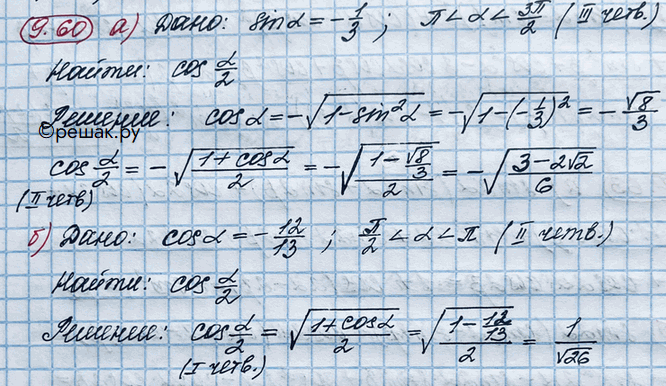 9.60 а) Дано: sinα = -1/3; π < α < 3π/2 (III четв.)
Найти: cos α/2
Решение: cosα = -√(1-sin²α) = -√(1-(-1/3)²) = -√8/3
©решак.ру
cos α/2 = -√((1+cosα)/2) = -√((1-√8/3)/2) = -√((3-2√2)/6)
(II четв)
б) Дано: cosα = -12/13; π/2 < α < π (II четв.)
Найти: cos α/2
Решение: cos α/2 = √((1+cosα)/2) = √((1-12/13)/2) = 1/√26
(I четв.)